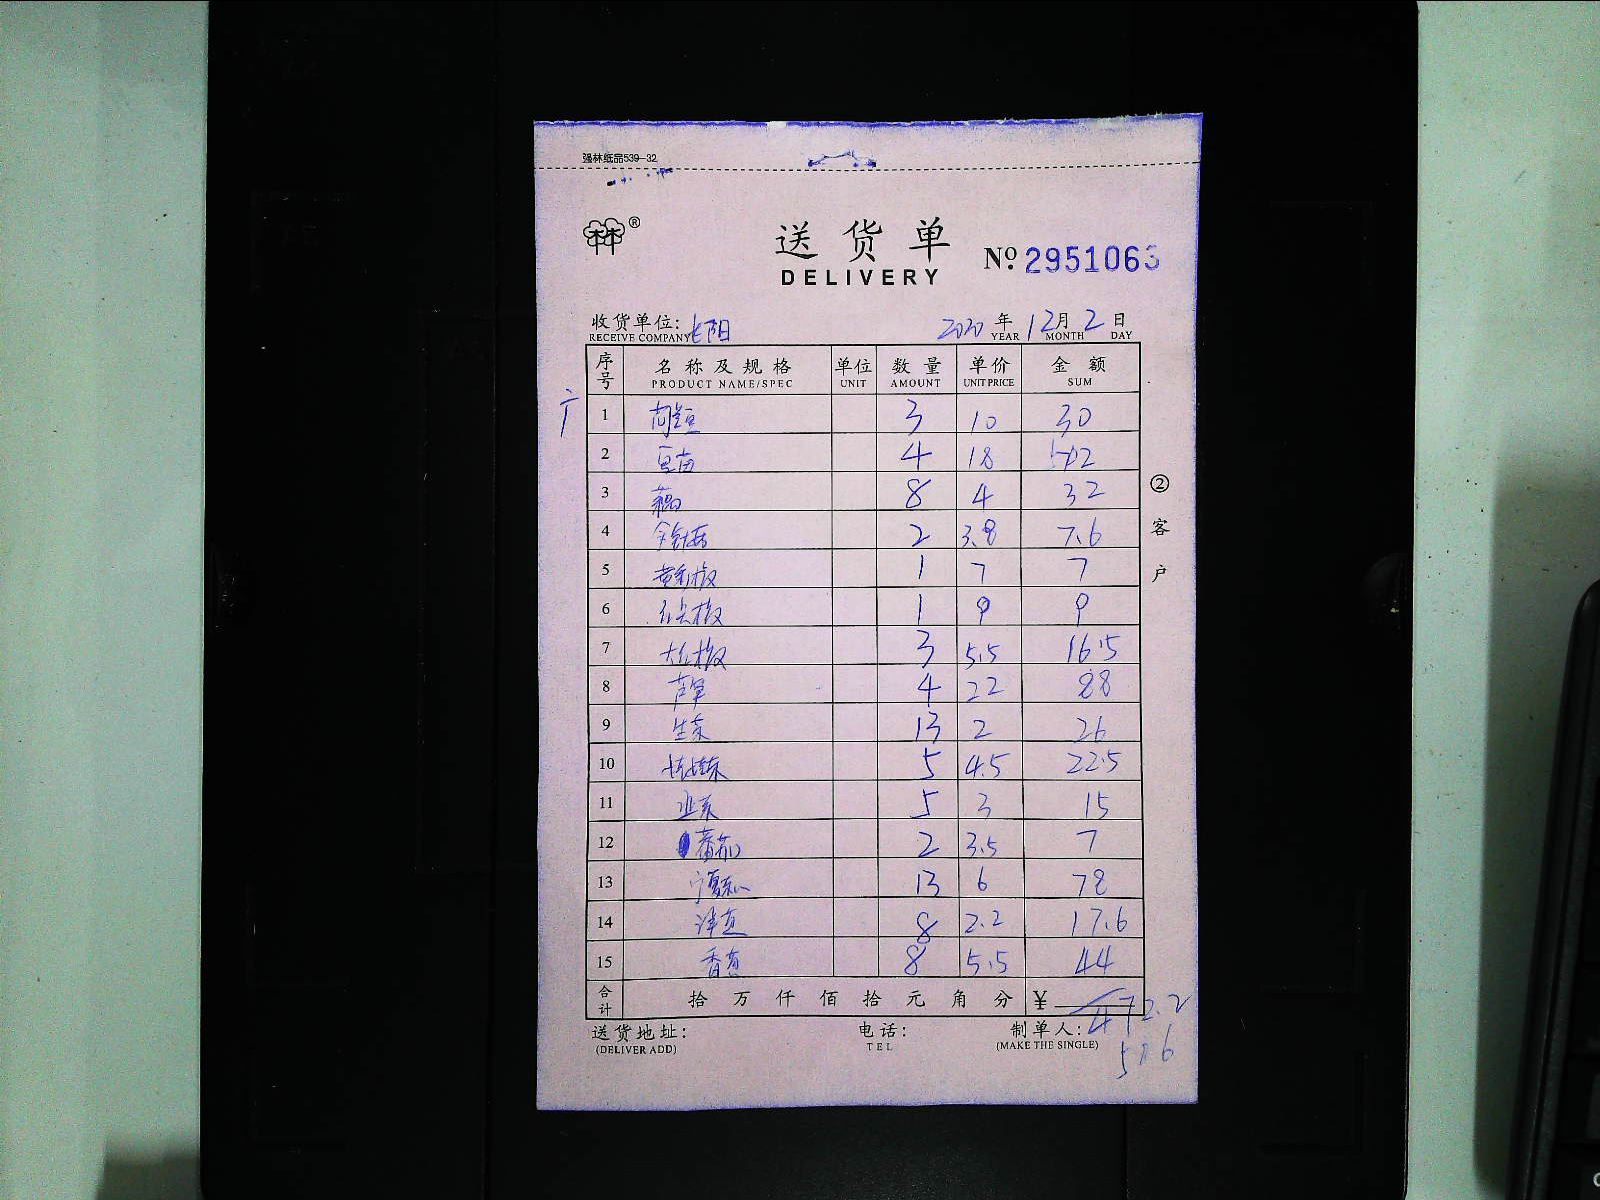 强林纸品539-32
林®
送货单
DELIVERY
№ 2951063
收货单位: 2020 年 12 月 2 日
RECEIVE COMPANY YEAR MONTH DAY
序号 名称及规格 单位 数量 单价 金额
PRODUCT NAME/SPEC UNIT AMOUNT UNIT PRICE SUM
1 3 10 30
2 豆苗 4 18
3 藕 8 4 32
4 金针菇 2 3.8 7.6
5 黄彩椒 1 7 7
6 1 9 9
7 大红椒 3 5.5 16.5
8 芦笋 4 22 88
9 生菜 13 2 26
10 5 4.5 22.5
11 5 3 15
12 番茄 2 3.5 7
13 13 6 78
14 洋葱 8 2.2 17.6
15 香葱 8 5.5 44
合计 拾 万 仟 佰 拾 元 角 分 ¥ 472.2
送货地址: 电话: 制单人:
(DELIVER ADD) TEL (MAKE THE SINGLE)
②客户